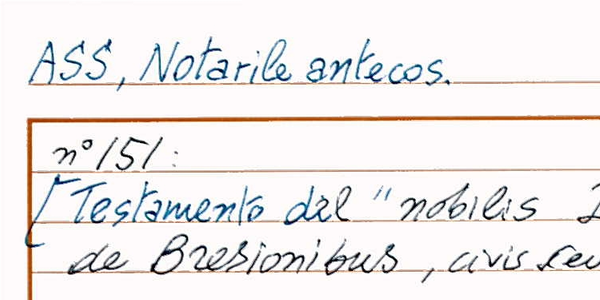 ASS, Notarile antecos.
n° 151:
[Testamento del "nobilis
de Bresionibus, civis